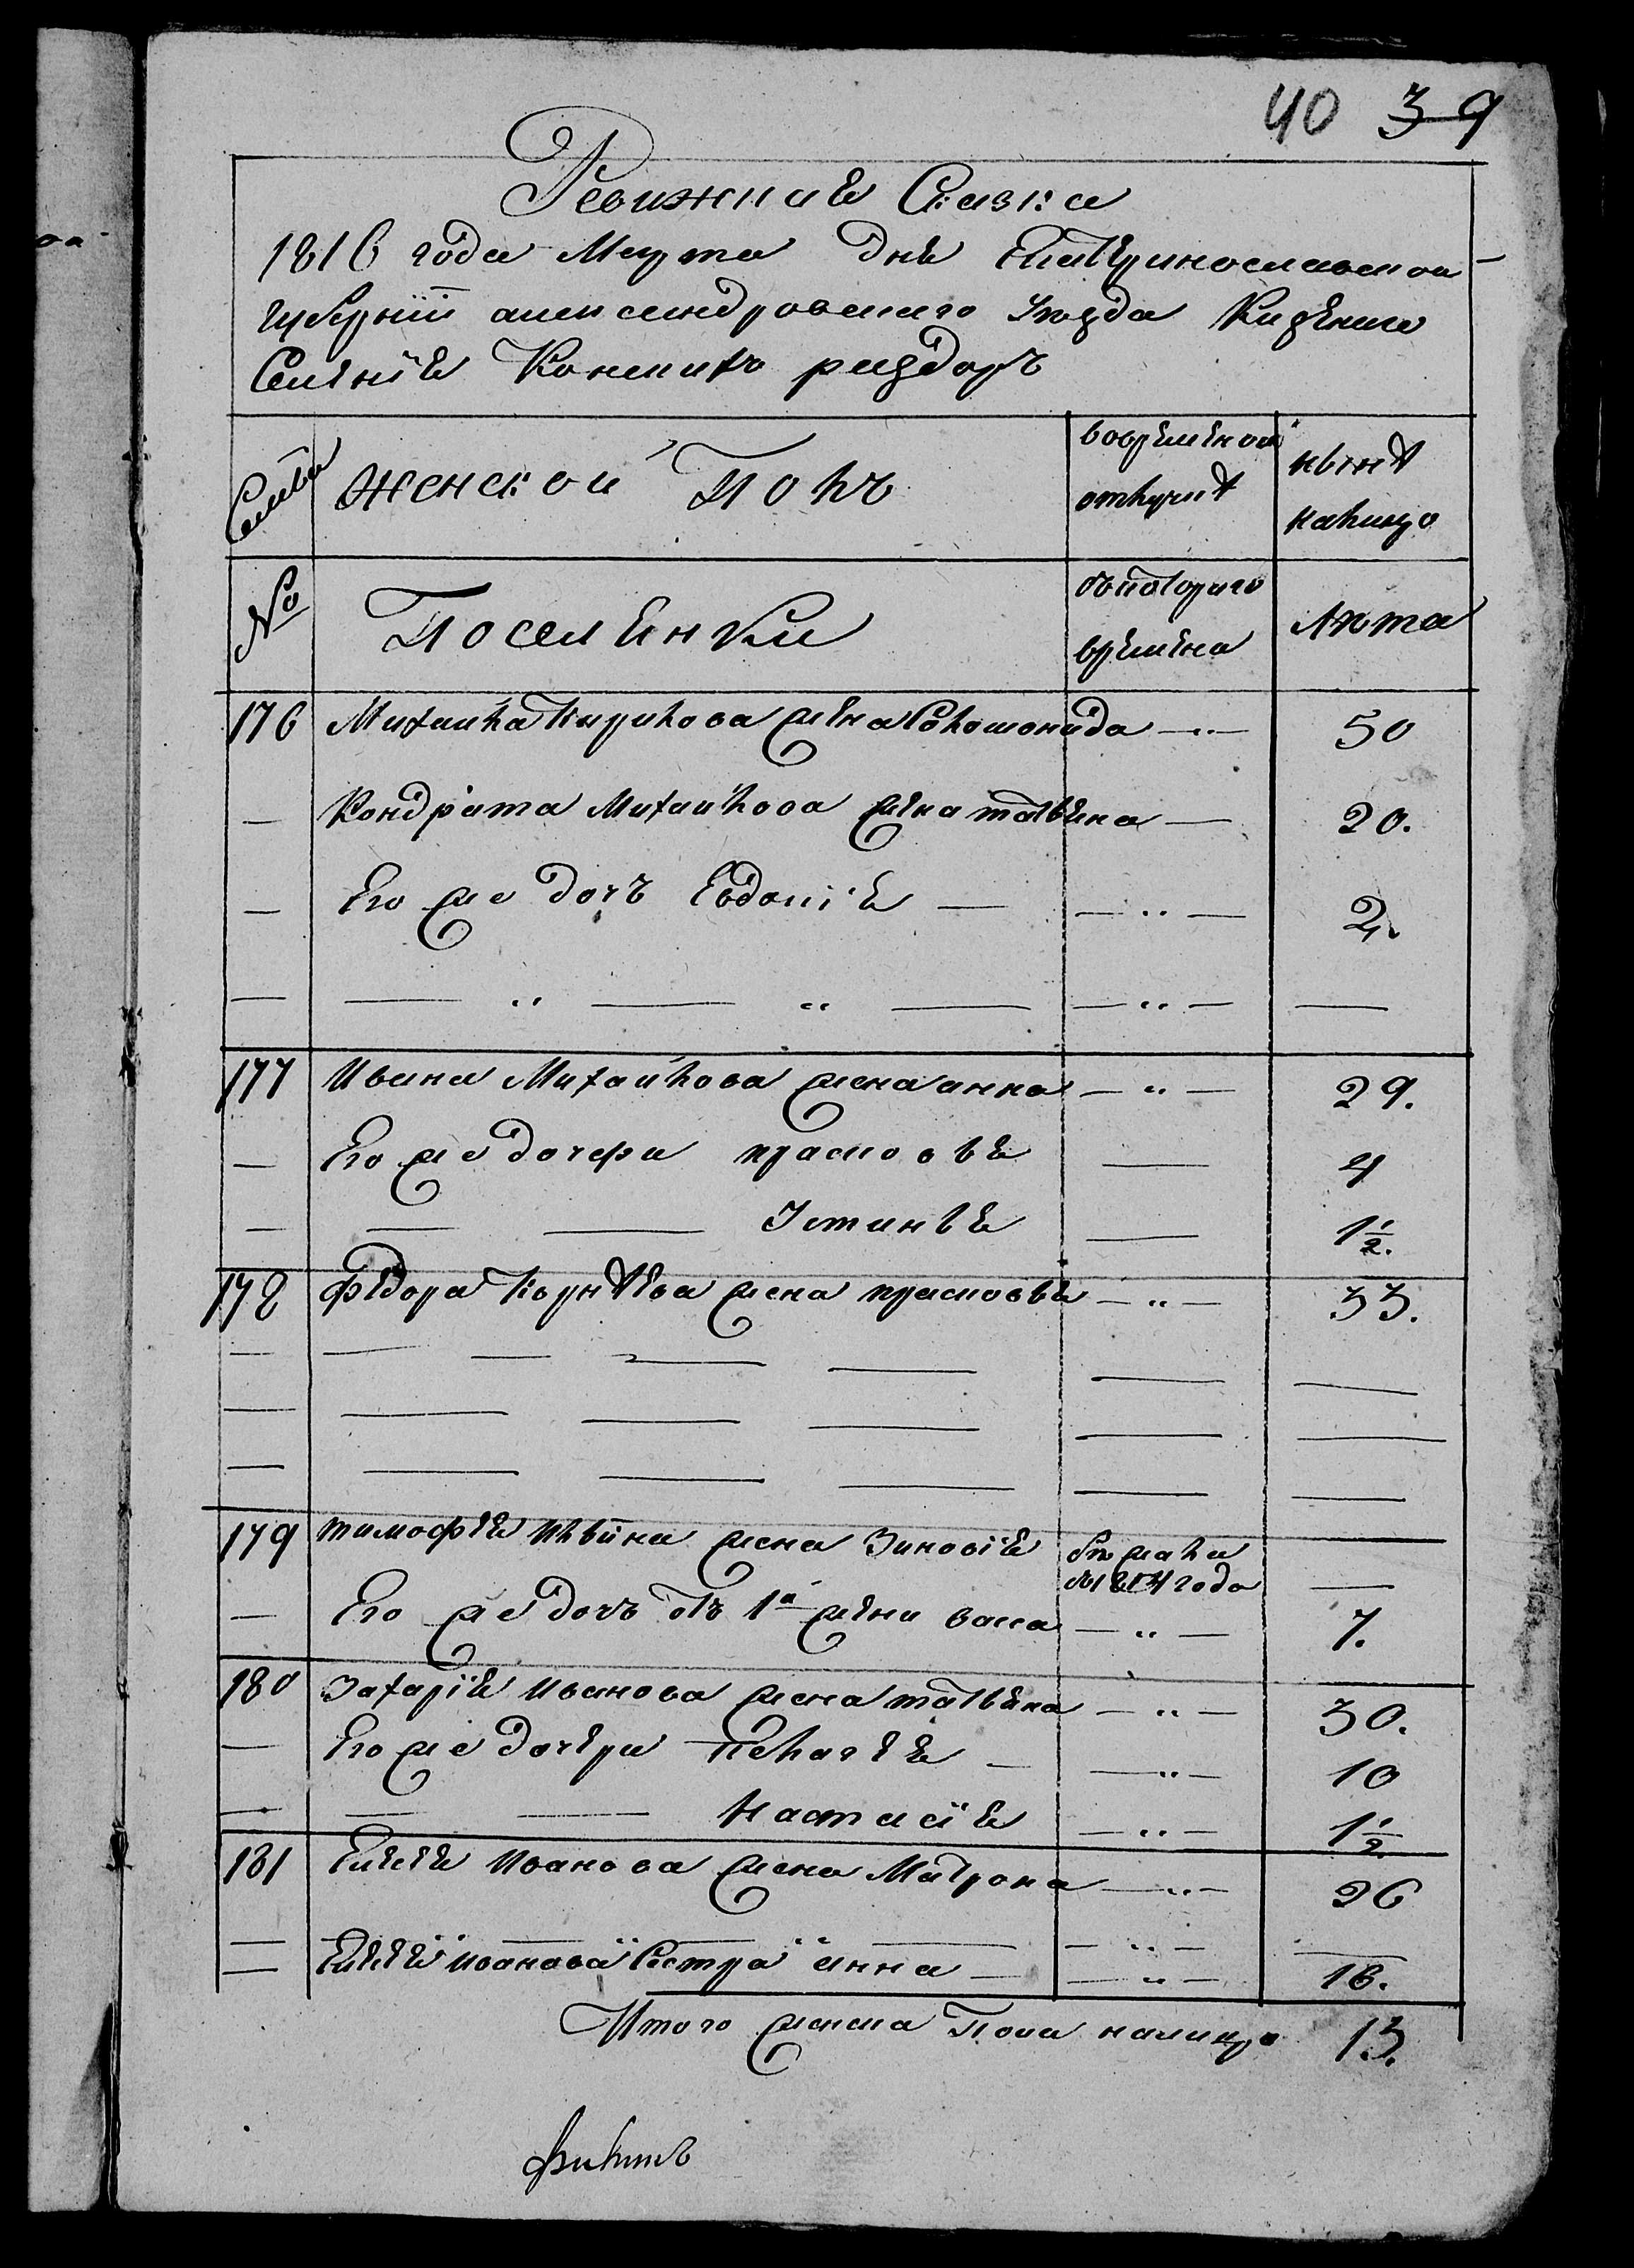 40 39
Ревижная Сказка
1816 года Марта дня Екатеринославской
губернии александровского уезда Казенно
Селения Конских раздоръ
Семьи
женской Полъ
вовременой
отлучке
ныне
налицо
№
Поселянки
съкоторого
времена
лѣта
176 Михайла Кирилова жена Соломонида — „ — 50
— Кондрата Михайлова жена татьяна — 20.
— Его же дочь Евдокия — — „ — 2.
— — „ — „ — — „ — —
177 Ивана Михайлова жена анна — „ — 29.
— Его же дочери прасковья — 4
— — — Устинья — 1½.
178 Федора Корнѣева жена прасковья — „ — 33.
— — — — — — —
— — — — — —
— — — — — —
179 тимофея жена Зиновия бежала —
в 1814 года —
— Его же дочь отъ 1й жены васса — „ — 7.
180 Захария Иванова жена татьяна — „ — 30.
— Его же дочери Пелагея — — „ — 10
— — — Настасия — „ — 1½
181 Елисея Иванова жена Матрона — „ — 26
— — — — — „ — —
— Елисея Иванова Сестра анна — — „ — 16.
Итого женска Пола налицо 13.